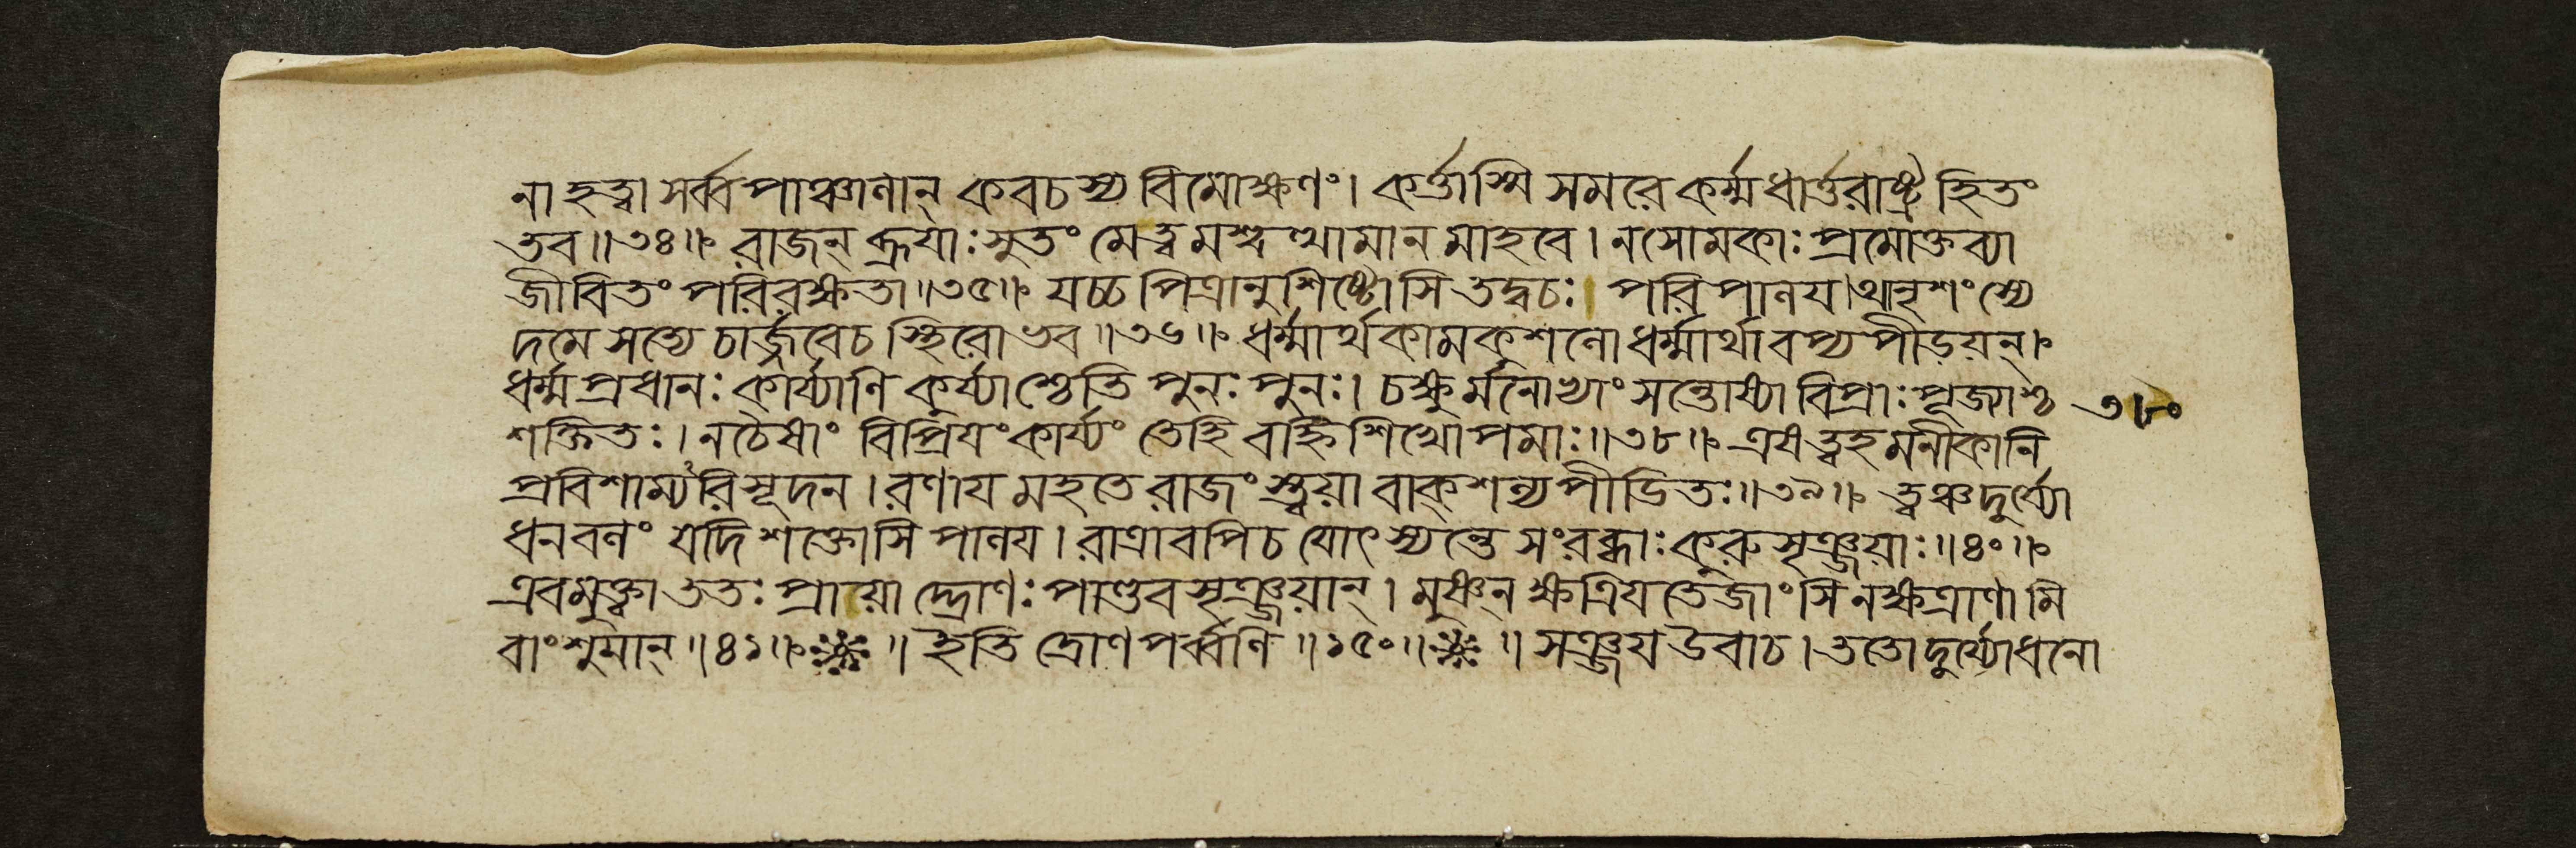 না হত্বা সর্ব্ব পাঞ্চালান্ কবচস্য বিমোক্ষণং। কর্ত্তাস্মি সমরে কর্ম্ম ধার্ত্তরাষ্ট্র হিতং
তব॥৩৪॥ রাজন্ ব্রূযাঃ সুতং মে ত্বমশ্বত্থামানমাহবে। ন সোমকাঃ প্রমোক্তব্যা
জীবিতং পরিরক্ষতা॥৩৫॥ যচ্চ পিত্রানুশিষ্টোসি তদ্বচঃ পরিপালয। আনৃশংস্যে
দমে সত্যে চার্জ্জবে চ স্থিরো ভব॥৩৬॥ ধর্ম্মার্থকামকুশলো ধর্ম্মার্থাবপ্যপীড়য়ন্।
ধর্ম্মপ্রধানঃ কার্য্যাণি কুর্য্যাশ্চেতি পুনঃ পুনঃ। চক্ষুর্মনোভ্যাং সন্তোষ্যা বিপ্রাঃ পূজ্যাশ্চ ৩৭
শক্তিতঃ। ন চৈষাং বিপ্রিযং কার্য্যং তেহি বহ্নিশিখোপমাঃ॥৩৮॥ এষ ত্বহমনীকানি
প্রবিশাম্যরিসূদন। রণায মহতে রাজংস্ত্বয়া বাক্শল্যপীডিতঃ॥৩৯॥ ত্বঞ্চ দুর্য্যো
ধন বলং যদি শক্তোসি পালয। রাত্রাবপি চ যোৎস্যন্তে সংরব্ধাঃ কুরুসৃঞ্জয়াঃ॥৪০॥
এবমুক্ত্বা ততঃ প্রায়াদ্দ্রোণঃ পাণ্ডবসৃঞ্জয়ান্। মুষ্ণন্ ক্ষত্রিযতেজাংসি নক্ষত্রাণামি
বাংশুমান্॥৪১॥ ॥ ইতি দ্রোণপর্ব্বণি॥১৫০॥ ॥ সঞ্জয উবাচ। ততো দুর্য্যোধনো